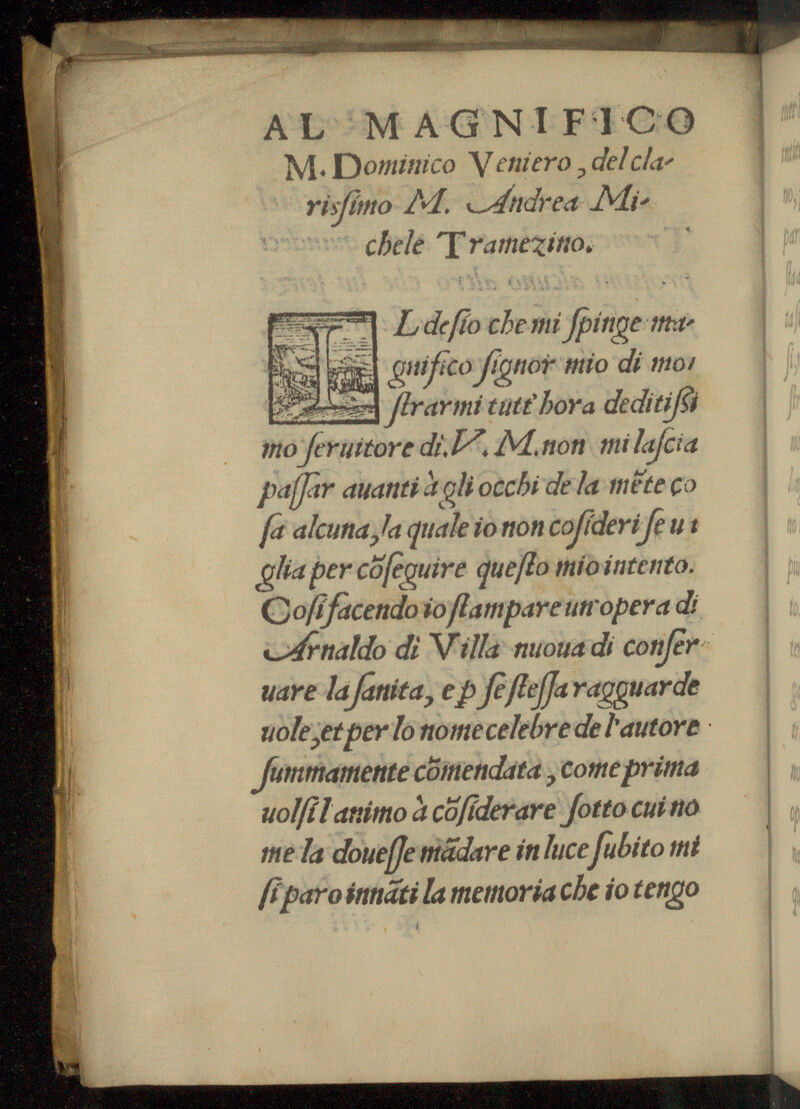 AL MAGNIFICO
M. Dominico Veniero, del cla-
risſimo M. Andrea Mi-
chele Tramezino.
IL deſio che mi ſpinge ma-
gnifico ſignor mio di mo-
ſtrarmi tutt'hora deditiſſi
mo ſeruitore di.V. M.non mi laſcia
paſſar auanti à gli occhi de la mẽte co
ſa alcuna,la quale io non cõſideri ſe u t
glia per cõſeguire queſto mio intento.
Coſi facendo io ſtampare un'opera di
Arnaldo di Villa nuoua di conſer
uare la ſanita, e p ſe ſteſſa ragguarde
uole,et per lo nome celebre de l'autore
ſummamente cõmendata, come prima
uolſi l animo à cõſiderare ſotto cui no
me la doueſſe mãdare in luce ſubito mi
ſi paro innãti la memoria che io tengo